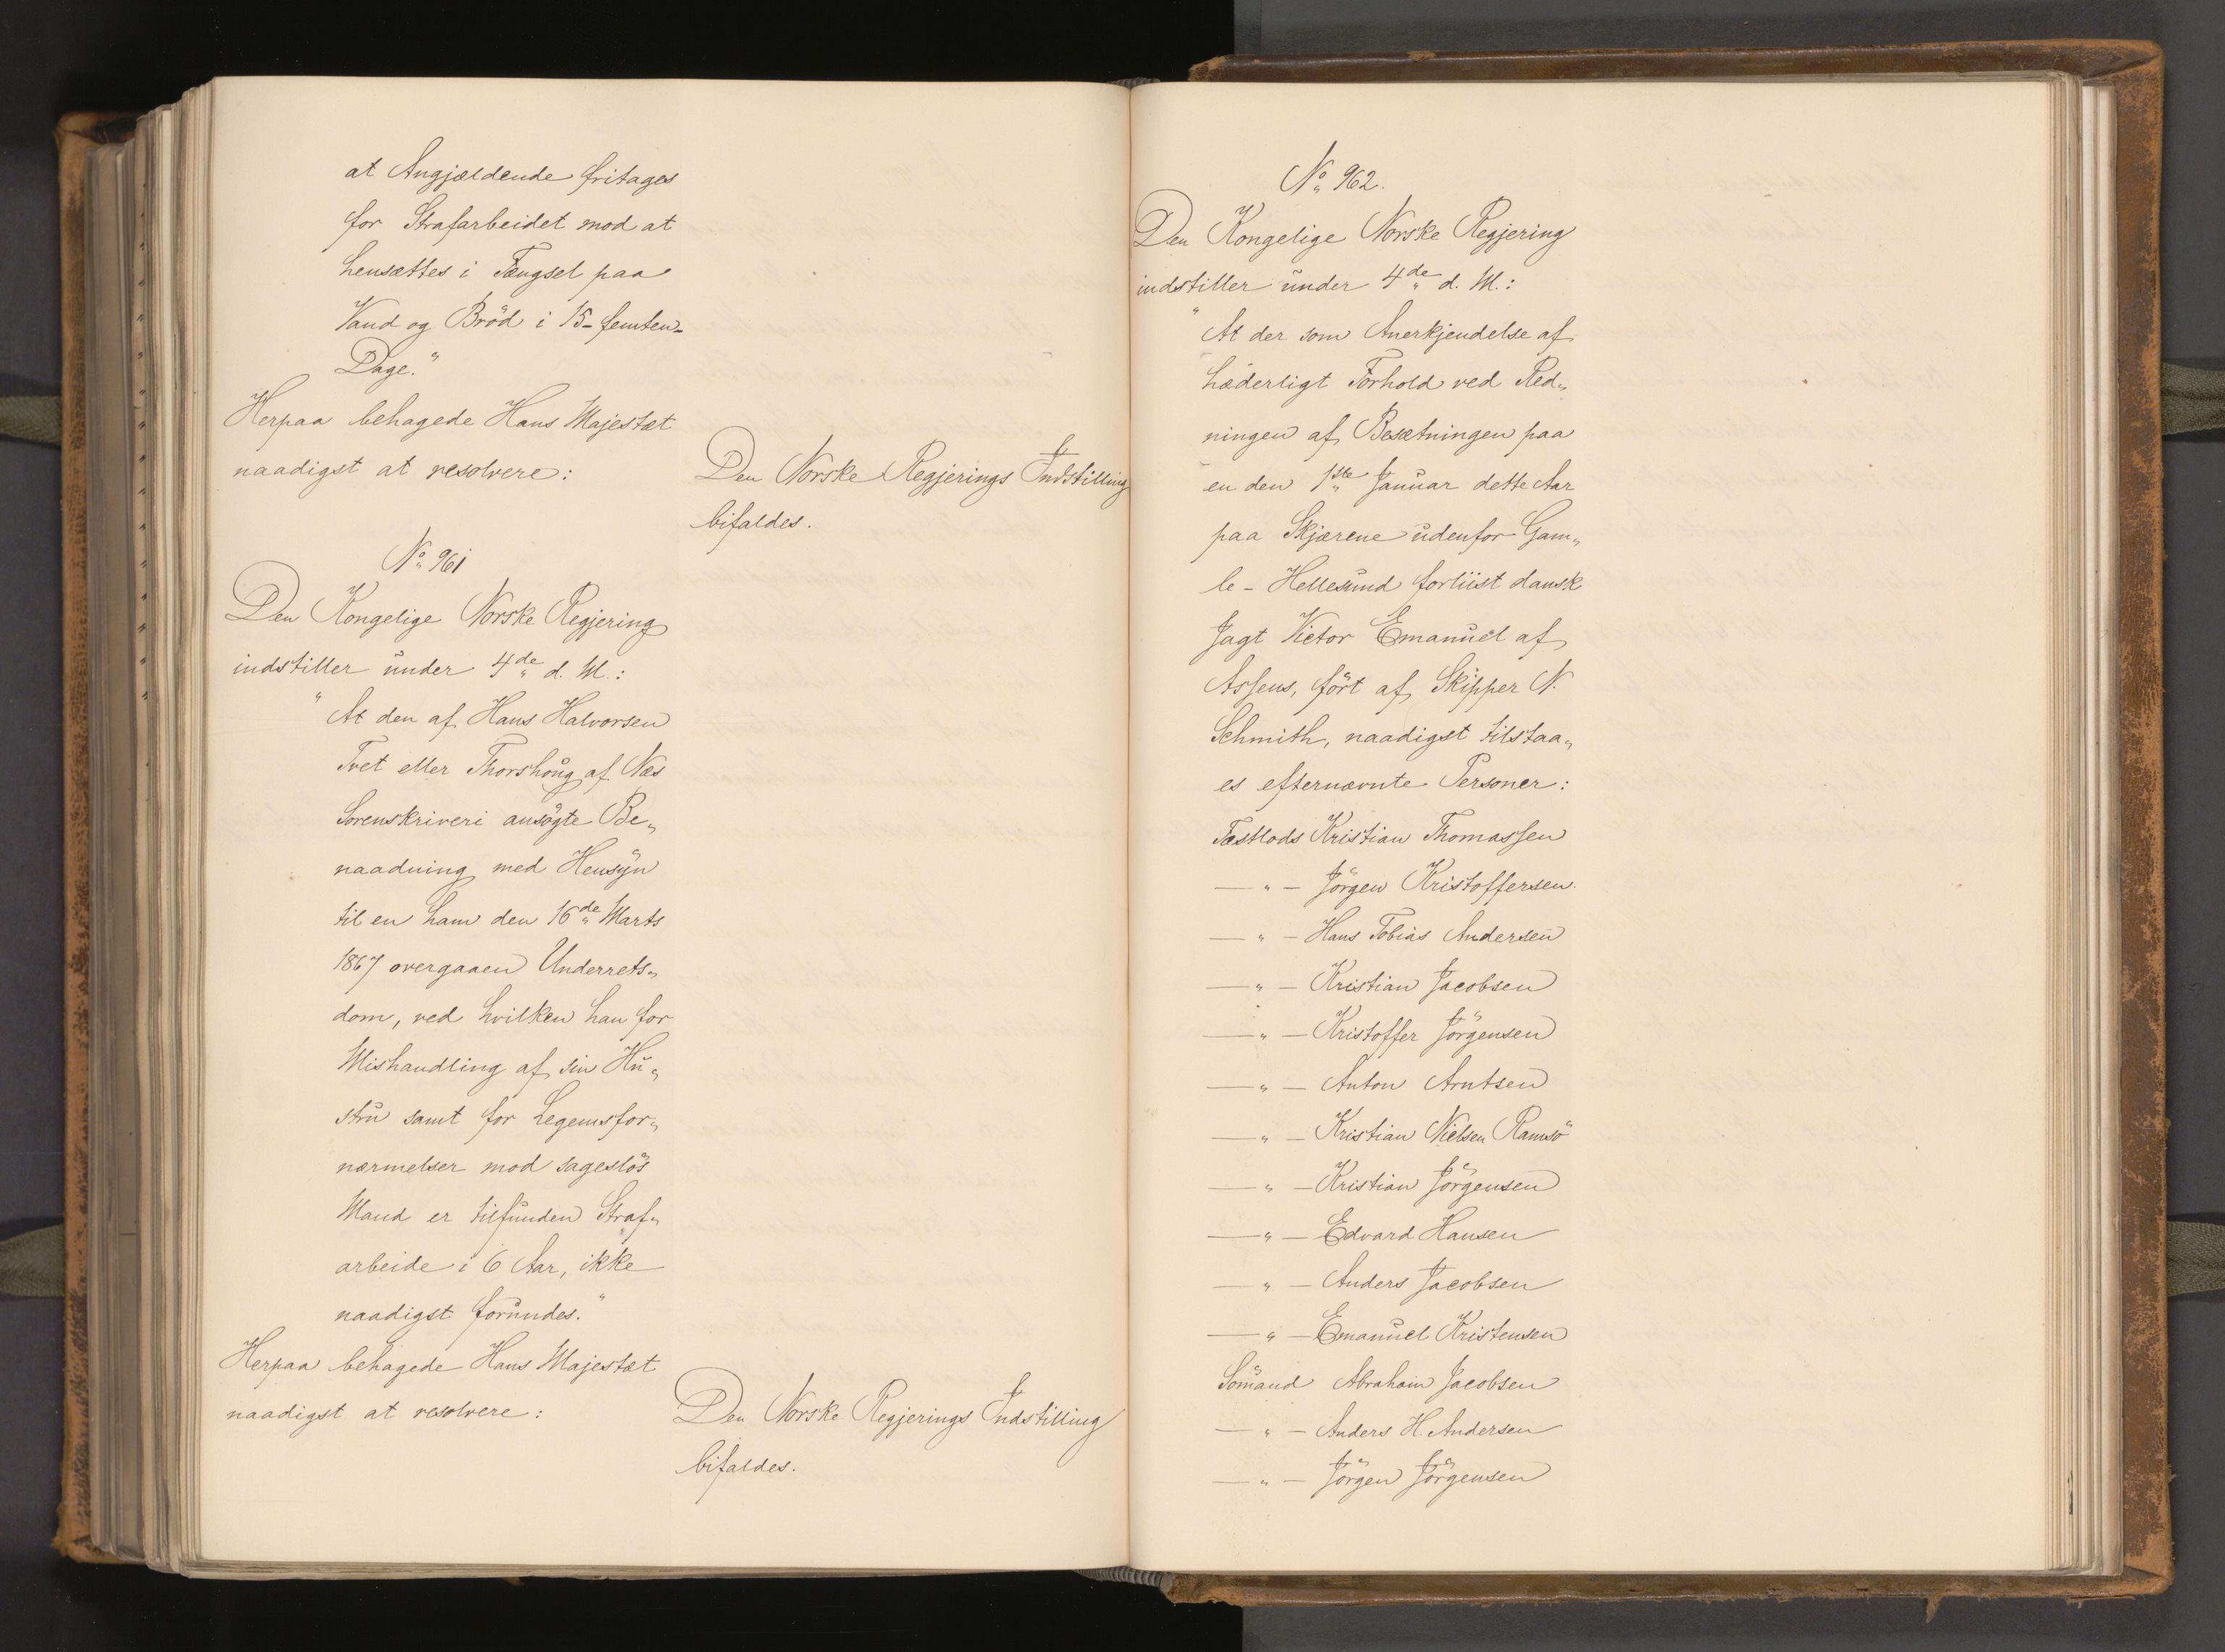 at Angjældende fritages
for Strafarbeidet mod at
hensættes i Fængsel paa
Vand og Bröd i 15 - femten -
Dage."
Herpaa behagede Hans Majestæt
naadigst at resolvere:
Den Norske Regjerings Indstilling
bifaldes.
No 961
Den Kongelige Norske Regjering
indstiller under 4de d. M.:
"At den af Hans Halvorsen
Tvet eller Thorshoug af Næs
Sorenskriveri ansögte Be„
naadning med Hensyn
til en ham den 16de Marts
1867 overgaaen Underrets„
dom, ved hvilken han for
Mishandling af sin Hu„
stru samt for Legemsfor„
nærmelser mod sageslös
Mand er tilfunden Straf„
arbeide i 6 Aar, ikke
naadigst forundes."
Herpaa behagede Hans Majestæt
naadigst at resolvere:
Den Norske Regjerings Indstilling
bifaldes.
No 962.
Den Kongelige Norske Regjering
indstiller under 4de d. M.:
"At der som Anerkjendelse af
hæderligt Forhold ved Red„
ningen af Besætningen paa
en den 1ste Januar dette Aar
paa Skjærene udenfor Gam„
le - Hellesund forliist dansk
Jagt Victor Emanuel af
Assens, fört af Skipper N.
Schmith, naadigst tilstaa„
es efternævnte Personer:
Fastlods Kristian Thomassen
— " — Jörgen Kristoffersen.
— " — Hans Tobias Andersen
— " — Kristian Jacobsen
— " — Kristoffer Jörgensen
— " — Anton Arntsen
— " — Kristian Nielsen Ramsö
— " — Kristian Jörgensen
— " — Edvard Hansen
— " — Anders Jacobsen
— " — Emanuel Kristensen
Sömand Abraham Jacobsen
— " — Anders H. Andersen
— " — Jörgen Jörgensen